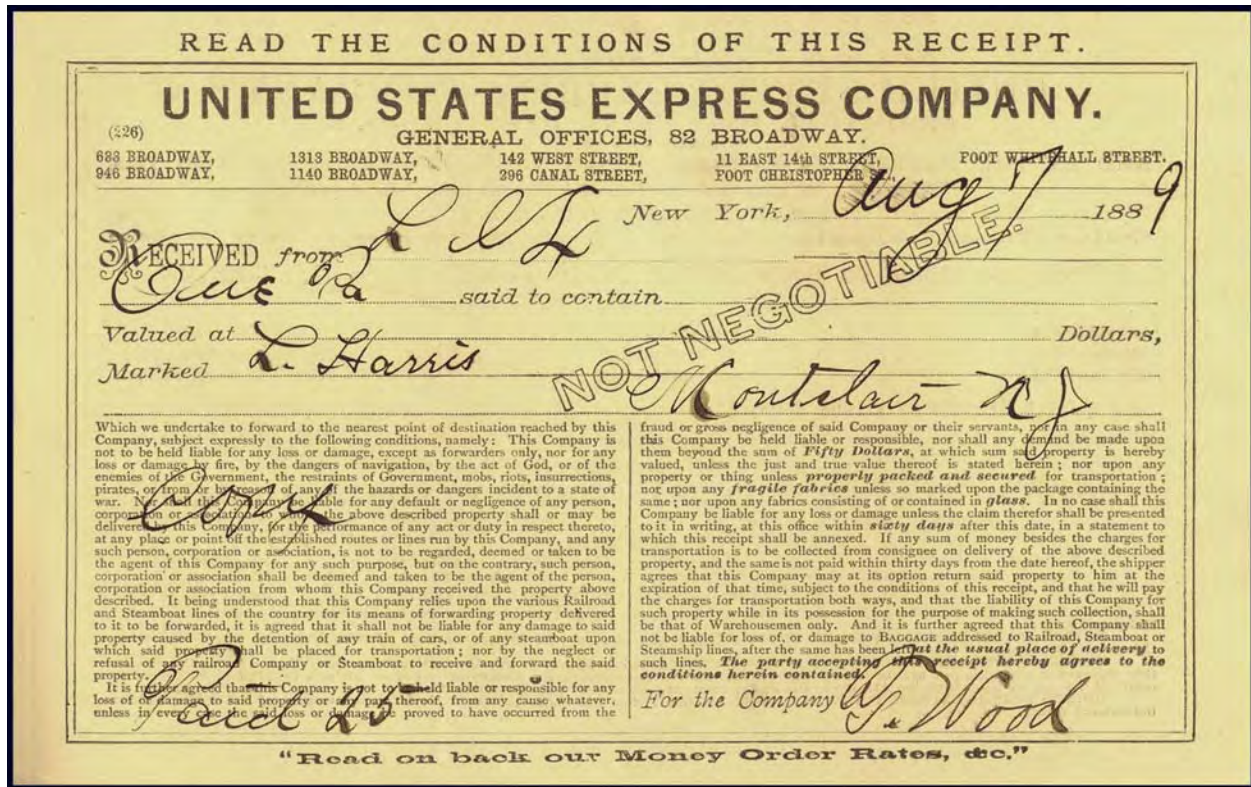 READ THE CONDITIONS OF THIS RECEIPT.
UNITED STATES EXPRESS COMPANY.
(226)
GENERAL OFFICES, 82 BROADWAY.
683 BROADWAY, 1313 BROADWAY, 142 WEST STREET, 11 EAST 14th STREET, FOOT WHITEHALL STREET.
946 BROADWAY, 1140 BROADWAY, 296 CANAL STREET, FOOT CHRISTOPHER ST.,
New York, Aug 7 1889
RECEIVED from
One said to contain
Valued at Dollars,
Marked L. Harris
NOT NEGOTIABLE.
Montclair NJ
Which we undertake to forward to the nearest point of destination reached by this
Company, subject expressly to the following conditions, namely: This Company is
not to be held liable for any loss or damage, except as forwarders only, nor for any
loss or damage by fire, by the dangers of navigation, by the act of God, or of the
enemies of the Government, the restraints of Government, mobs, riots, insurrections,
pirates, or from or by reason of any of the hazards or dangers incident to a state of
war. Nor shall this Company be liable for any default or negligence of any person,
corporation or association to whom the above described property shall or may be
delivered by this Company, for the performance of any act or duty in respect thereto,
at any place or point off the established routes or lines run by this Company, and any
such person, corporation or association, is not to be regarded, deemed or taken to be
the agent of this Company for any such purpose, but on the contrary, such person,
corporation or association shall be deemed and taken to be the agent of the person,
corporation or association from whom this Company received the property above
described. It being understood that this Company relies upon the various Railroad
and Steamboat lines of the country for its means of forwarding property delivered
to it to be forwarded, it is agreed that it shall not be liable for any damage to said
property caused by the detention of any train of cars, or of any steamboat upon
which said property shall be placed for transportation; nor by the neglect or
refusal of any railroad Company or Steamboat to receive and forward the said
property.
It is further agreed that this Company is not to be held liable or responsible for any
loss of or damage to said property or any part thereof, from any cause whatever,
unless in every case the said loss or damage be proved to have occurred from the
Paid 25
fraud or gross negligence of said Company or their servants, nor in any case shall
this Company be held liable or responsible, nor shall any demand be made upon
them beyond the sum of Fifty Dollars, at which sum said property is hereby
valued, unless the just and true value thereof is stated herein; nor upon any
property or thing unless properly packed and secured for transportation;
nor upon any fragile fabrics unless so marked upon the package containing the
same; nor upon any fabrics consisting of or contained in glass. In no case shall this
Company be liable for any loss or damage unless the claim therefor shall be presented
to it in writing, at this office within sixty days after this date, in a statement to
which this receipt shall be annexed. If any sum of money besides the charges for
transportation is to be collected from consignee on delivery of the above described
property, and the same is not paid within thirty days from the date hereof, the shipper
agrees that this Company may at its option return said property to him at the
expiration of that time, subject to the conditions of this receipt, and that he will pay
the charges for transportation both ways, and that the liability of this Company for
such property while in its possession for the purpose of making such collection, shall
be that of Warehousemen only. And it is further agreed that this Company shall
not be liable for loss of, or damage to BAGGAGE addressed to Railroad, Steamboat or
Steamship lines, after the same has been left at the usual place of delivery to
such lines. The party accepting this receipt hereby agrees to the
conditions herein contained.
For the Company Wood
"Read on back our Money Order Rates, &c."